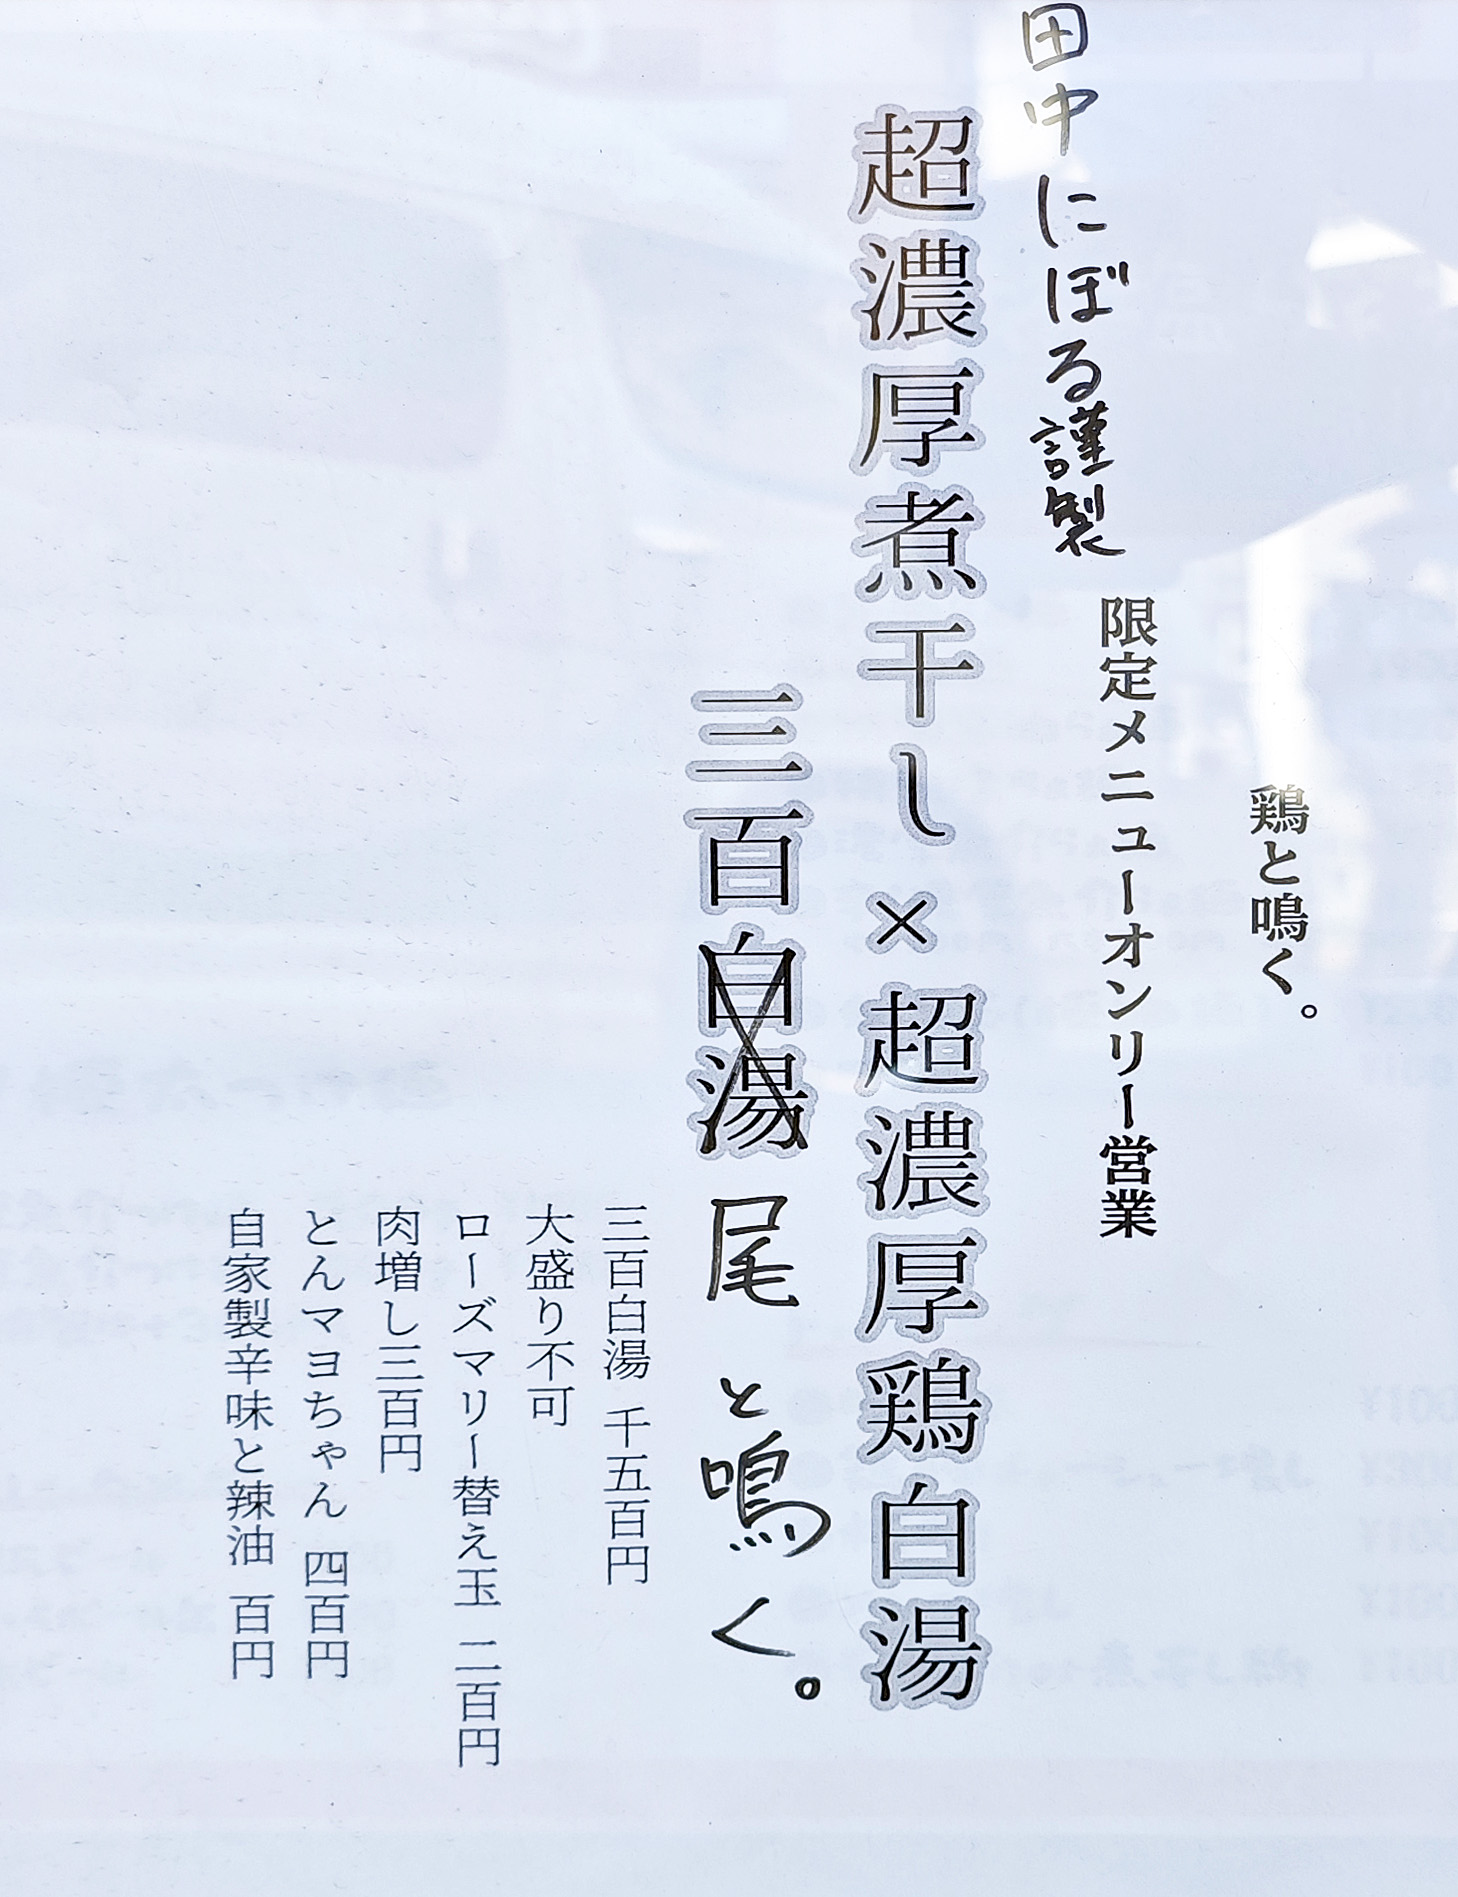 鶏と鳴く。
限定メニューオンリー営業
田中にぼる謹製
超濃厚煮干し×超濃厚鶏白湯
三百白湯尾と鳴く。
三百白湯 千五百円
大盛り不可
ローズマリー替え玉 二百円
肉増し三百円
とんマヨちゃん 四百円
自家製辛味と辣油 百円